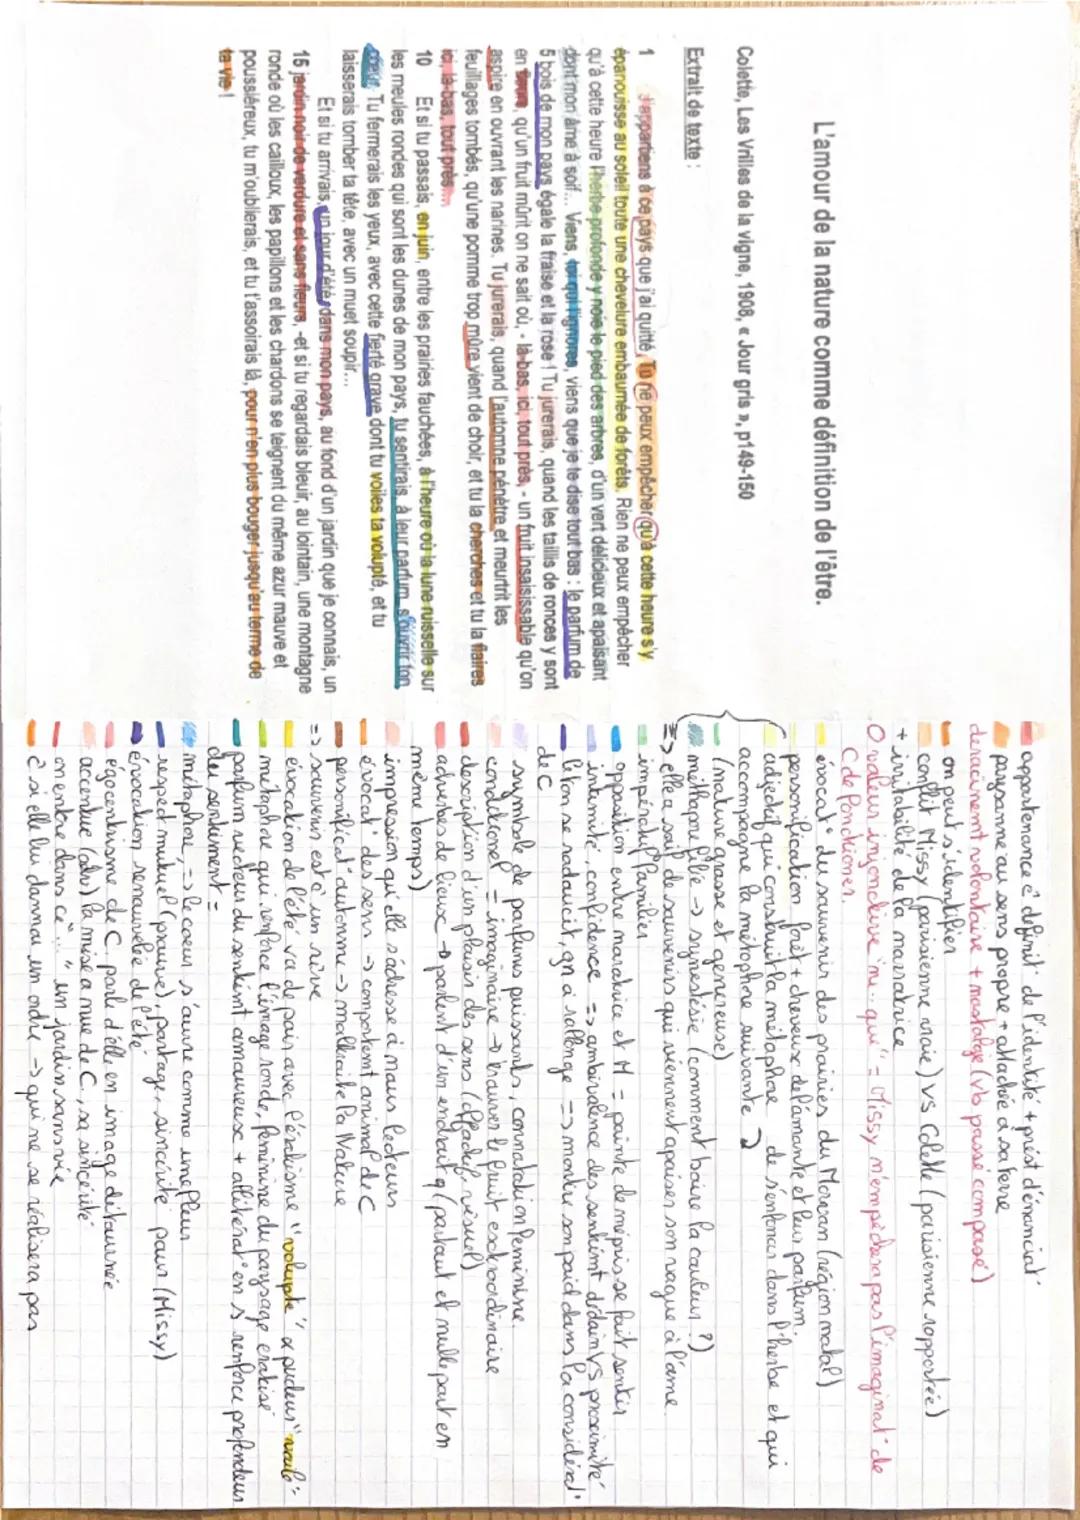 L'amour de la nature comme définition de l'être.
Colette, Les Vrilles de la vigne, 1908, « Jour gris », p149-150
Extrait de texte :
1 J'appartiens à ce pays que j'ai quitté. Tu ne peux empêcher qu'à cette heure s'y
épanouisse au soleil toute une chevelure embaumée de forêts. Rien ne peux empêcher
qu'à cette heure l'herbe profonde y noie le pied des arbres, d'un vert délicieux et apaisant
dont mon âme à soif... Viens, toi qui l'ignores, viens que je te dise tout bas : le parfum de
5 bois de mon pays égale la fraise et la rose ! Tu jurerais, quand les taillis de ronces y sont
en fleurs, qu'un fruit mûrit on ne sait où, - là-bas, ici, tout près, - un fruit insaisissable qu'on
aspire en ouvrant les narines. Tu jurerais, quand l'automne pénètre et meurtrit les
feuillages tombés, qu'une pomme trop mûre vient de choir, et tu la cherches et tu la flaires
ici, là-bas, tout près...
10 Et si tu passais, en juin, entre les prairies fauchées, à l'heure où la lune ruisselle sur
les meules rondes qui sont les dunes de mon pays, tu sentirais, à leur parfum, s'ouvrir ton
coeur. Tu fermerais les yeux, avec cette fierté grave dont tu voiles ta volupté, et tu
laisserais tomber ta tête, avec un muet soupir...
Et si tu arrivais, un jour d'été, dans mon pays, au fond d'un jardin que je connais, un
15 jardin noir de verdure et sans fleurs, -et si tu regardais bleuir, au lointain, une montagne
ronde où les cailloux, les papillons et les chardons se teignent du même azur mauve et
poussiéreux, tu m'oublierais, et tu t'assoirais là, pour n'en plus bouger jusqu'au terme de
ta vie !
appartenance = définit° de l'identité + prést d'énonciat°
paysanne au sens propre + attachée à sa terre
déracinemt volontaire + nostalgie (vb passé composé)
on peut s'identifier
conflit Missy (parisienne vraie) vs Colette (parisienne rapportée)
+ irritabilité de la narratrice
O valeur injonctive "ne... qui" = Missy n'empêchera pas l'imaginat° de
C de fonctionner.
évocat° du souvenir des prairies du Morvan (région natal)
personnification forêt + cheveux de l'amante et leur parfum.
adjectif qui construit la métaphore de senteurs dans l'herbe et qui
accompagne la métaphore suivante
(nature grasse et genereuse)
méthapore filié → synestésie (comment boire la couleur ?)
=> elle a soif de souvenirs qui viennent apaiser son vague à l'âme.
impératif familier
opposition entre narratrice et M = pointe de mépris se fait sentir
intimité, confidence => ambivalence des sentimt dédain VS proximité
le ton se radoucit, gn à rallonge => montre son poid dans la considérat°
de C
symbole de parfums puissants, connotation féminine.
conditionel = imaginaire → trouver le fruit extraordinaire
description d'un plaisir des sens (olfactif, visuel)
adverbes de lieux → parlent d'un endroit q (partout et nulle part en
même temps)
impression qu'elle s'adresse à nous lecteurs
évocat° des sens → comportemt animal de C
personnificat° automne → maltraite la Nature
=> souvenir est à un rêve
évocation de l'été va de pair avec l'érotisme "volupté" ≠ pudeur "voile"
métaphore qui renforce l'image ronde, féminine du paysage erotisé
parfum vecteur du sentimt amoureux + allitérat° en s renforce profondeur
du sentiment =
métaphore => le coeur s'ouvre comme une fleur
respect mutuel (pauvre), partage, sincérité pour (Missy)
évocation renouvelée de l'été
égocentrisme de C, parle d'elle en image détournée
accentue (abs) la mise a nue de C, sa sincérité
on entre dans ce "..." un jardin sans vie
c si elle lui donnai un ordre → qui ne se réalisera pas